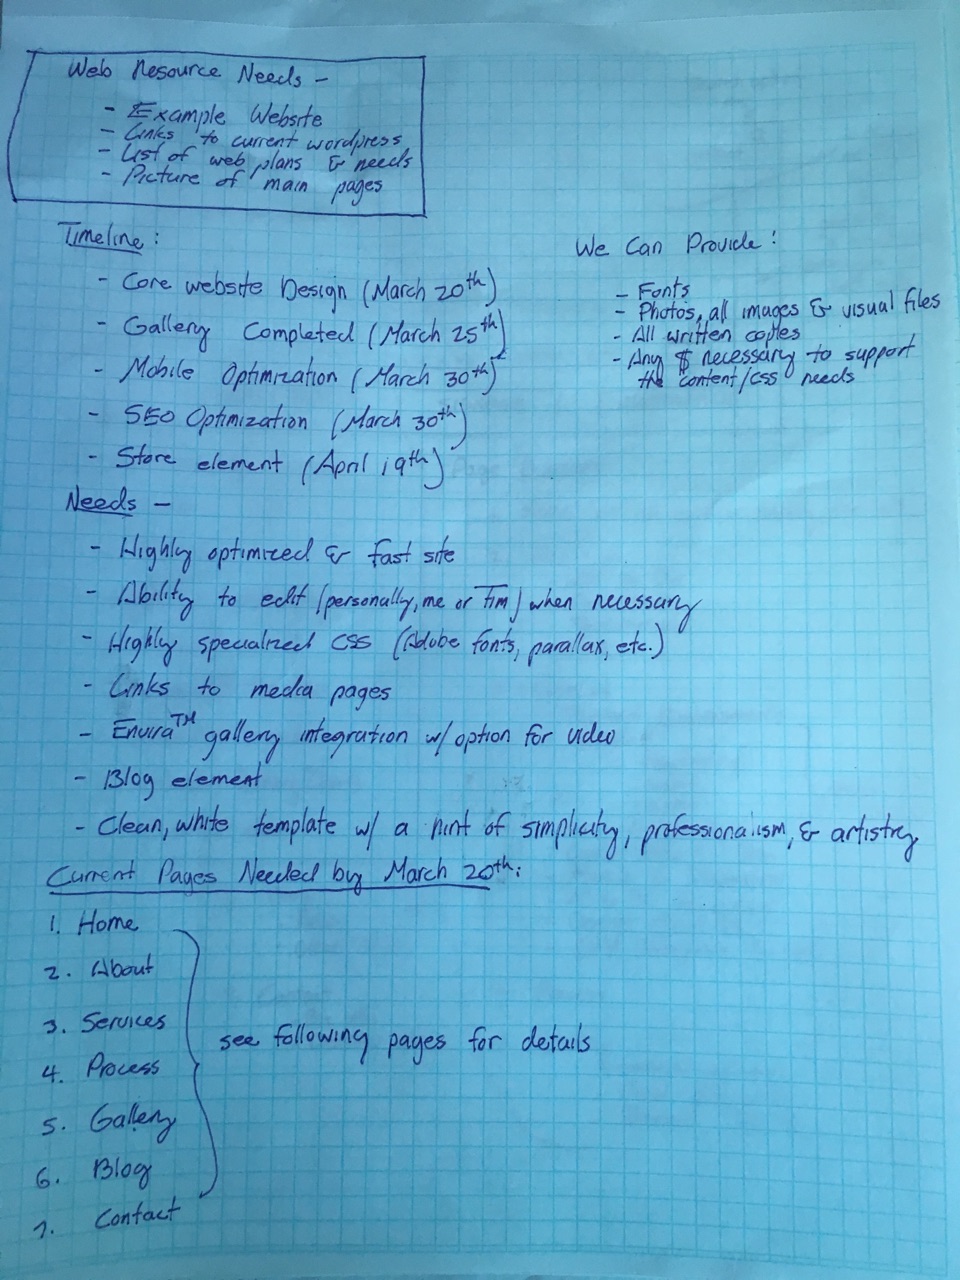 Web Resource Needs -
- Example Website
- Links to current wordpress
- List of web plans & needs
- Picture of main pages
Timeline:
- Core website Design (March 20th)
- Gallery Completed (March 25th)
- Mobile Optimization (March 30th)
- SEO Optimization (March 30th)
- Store element (April 19th)
We Can Provide:
- Fonts
- Photos, all images & visual files
- All written copies
- Any $ necessary to support
the content/css needs
Needs -
- Highly optimized & fast site
- Ability to edit (personally, me or Tim) when necessary
- Highly specialized CSS (Adobe fonts, parallax, etc.)
- Links to media pages
- Envira™ gallery integration w/ option for video
- Blog element
- Clean, white template w/ a hint of simplicity, professionalism, & artistry
Current Pages Needed by March 20th:
1. Home
2. About
3. Services
4. Process
5. Gallery
6. Blog
7. Contact
see following pages for details